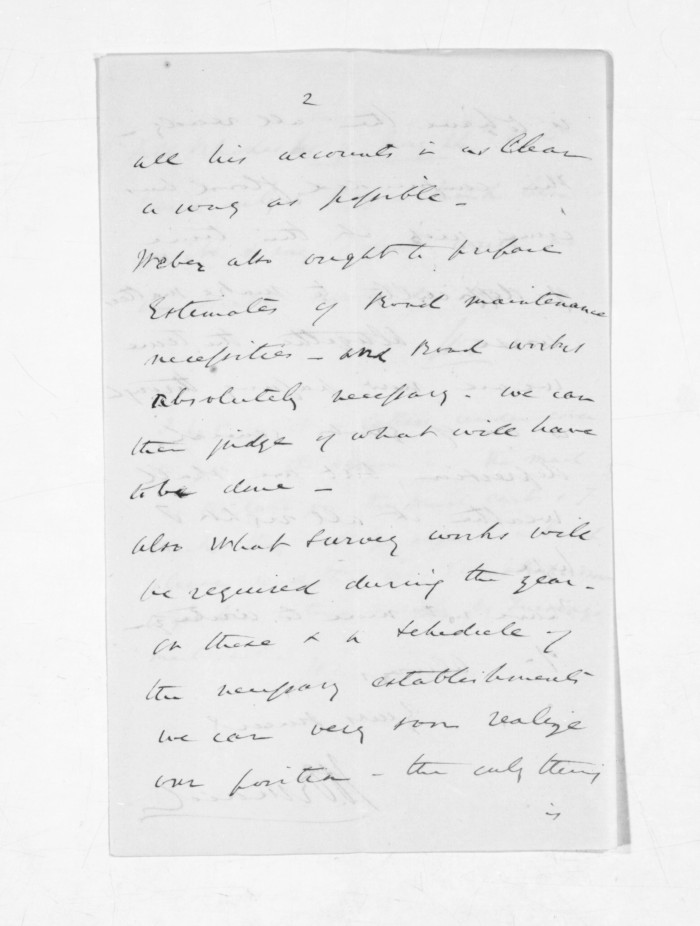 2
all his accounts in as Clear
a way as possible -
Weber also ought to prepare
Estimates of Road maintenance
necessities - and Road works
absolutely necessary. We can
then judge of what will have
to be done -
also What Survey works will
be required during the year -
on these & a Schedule of
the necessary establishments
we can very soon realize
our position - the only thing
is